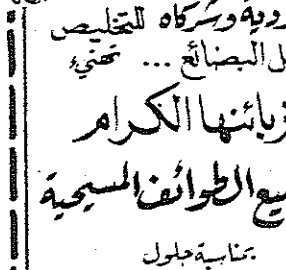 وشركاه للتخليص
البضائع ... تهنيء
زبائنها الكرام
الطوائف المسيحية
بمناسبة حلول